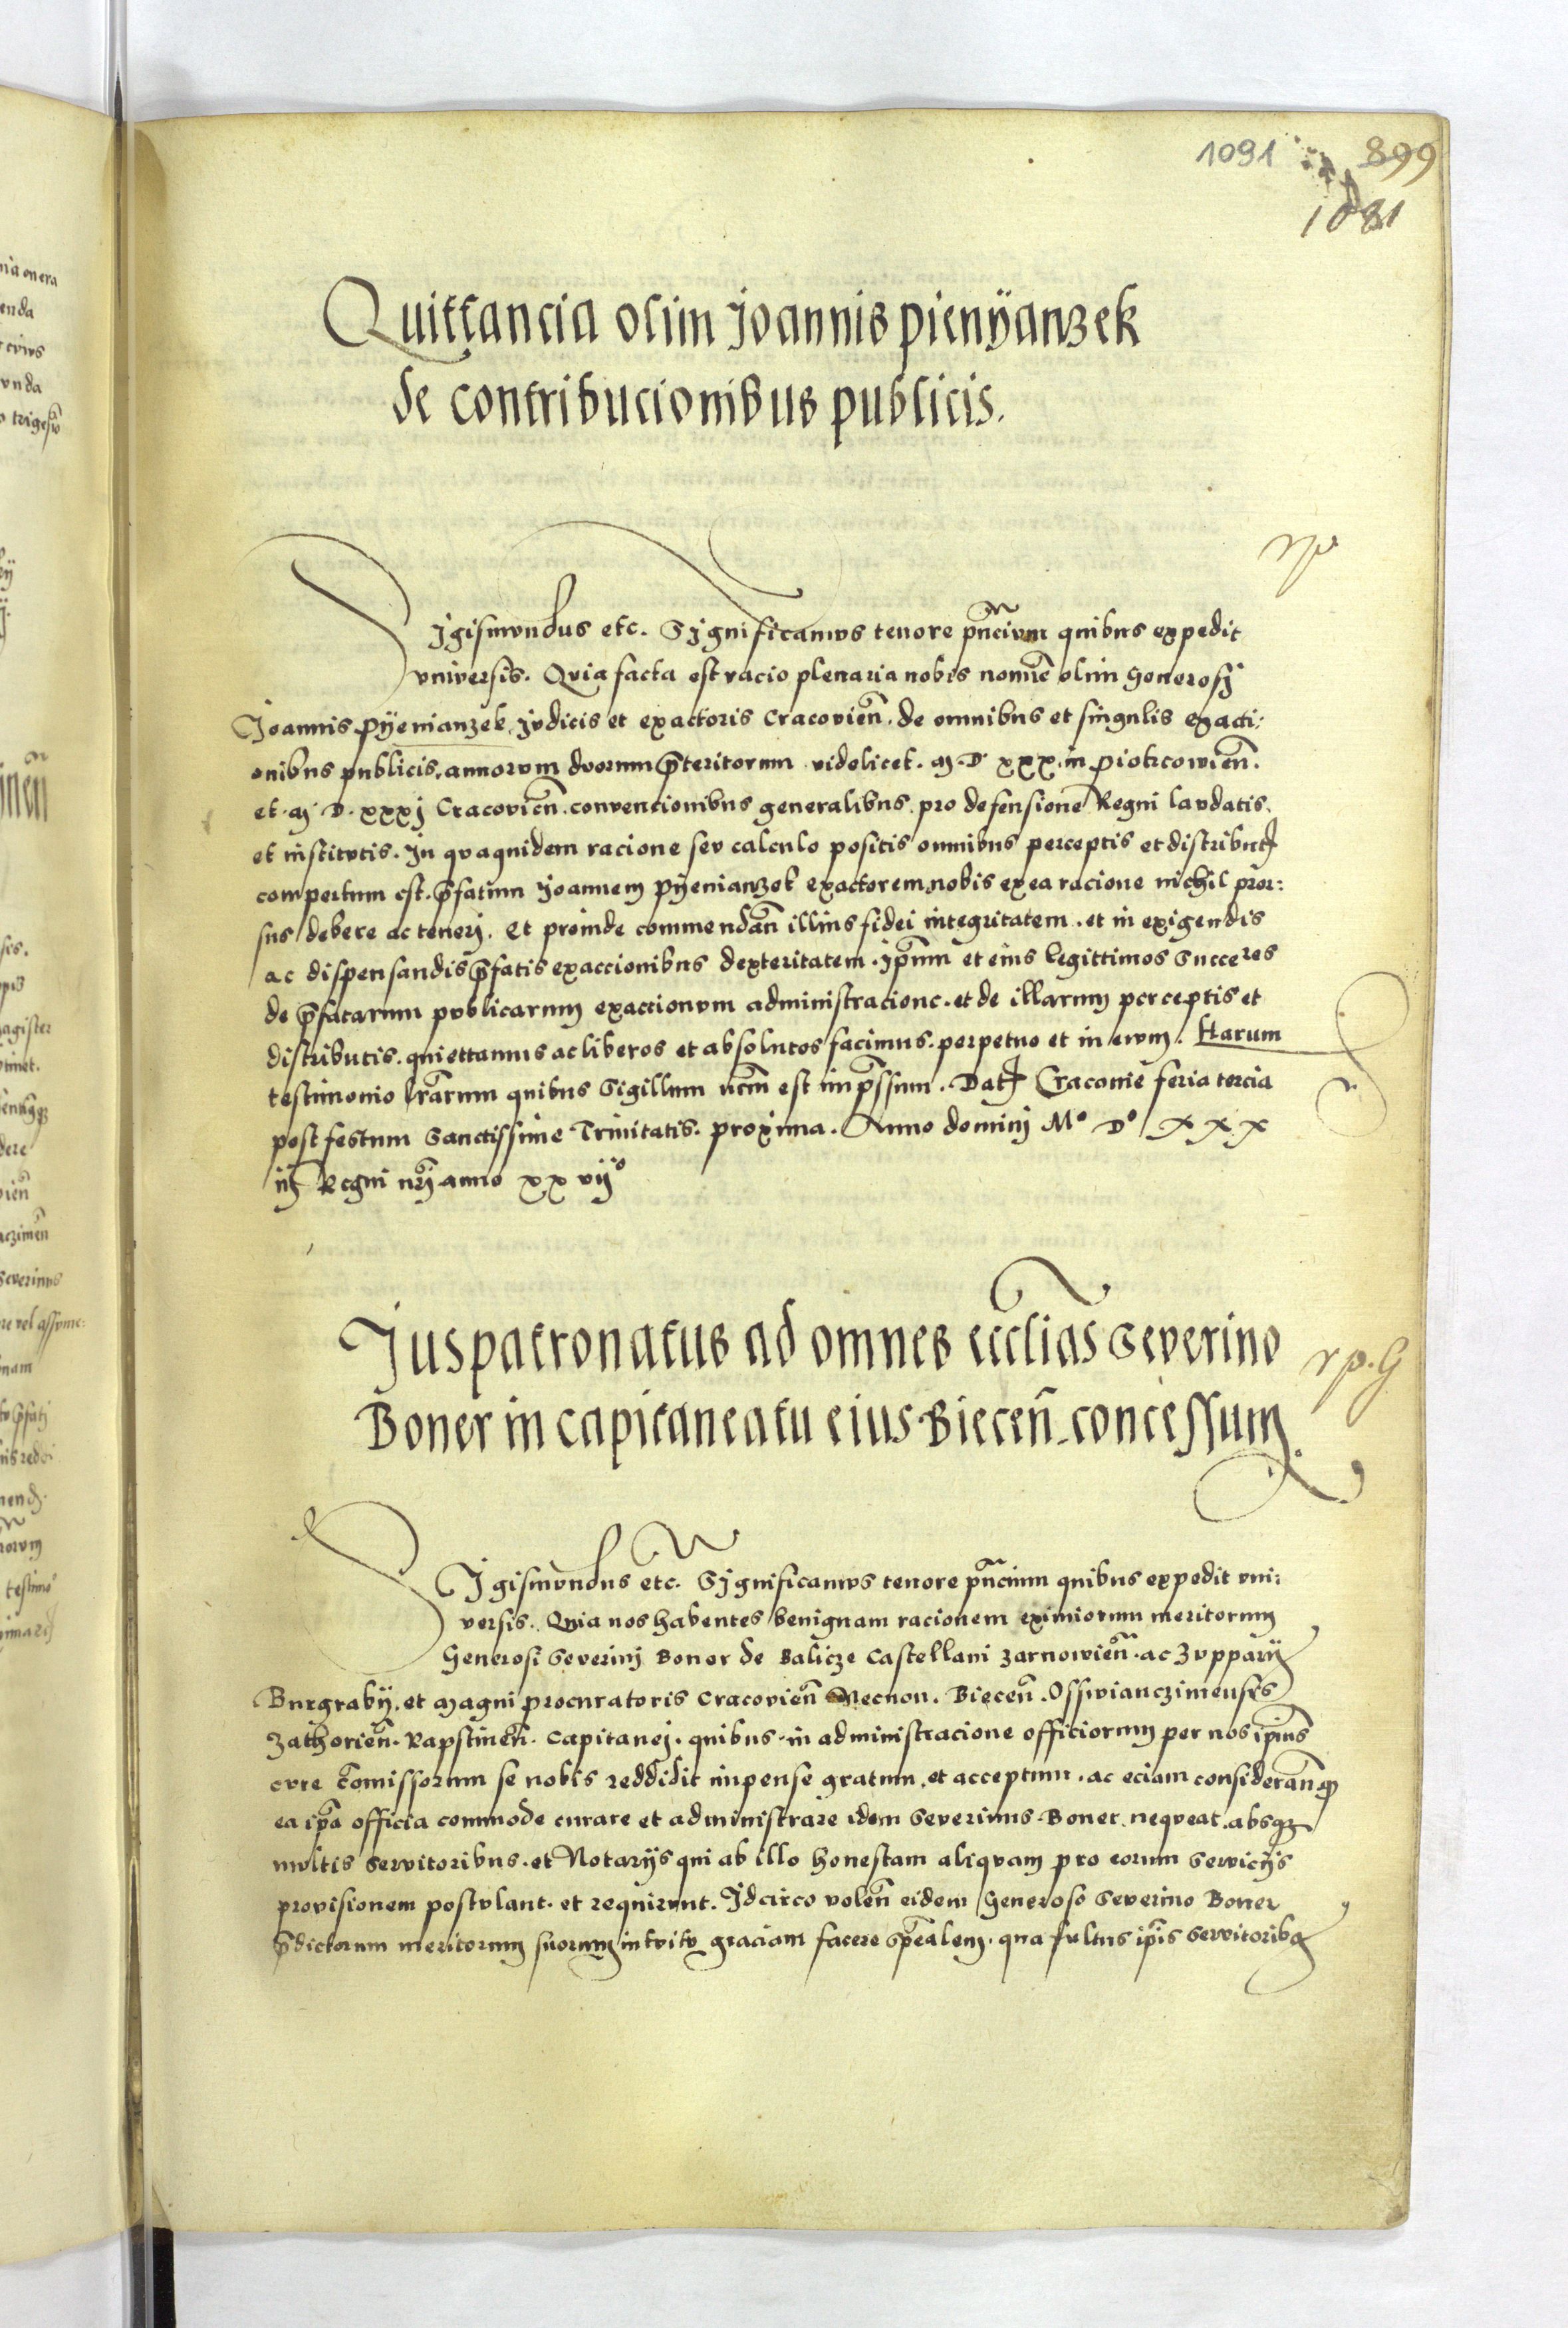 1091 899
1081
Quittancia olim Joannis pienÿanzek
de contribucionibus publicis.
rp
Sigismundus etc. Significamus tenore pñcium quibus expedit
vniversis. Quia facta est racio plenaria nobis nomĩe olim Generosi
Joannis Pÿenianzek Judicis et exactoris Cracovieñ. de omnibus et singulis exacti:
onibus publicis. annorum duorum p̃teritorum videlicet. M. D xxx. in Piotrcowieñ.
et. M. D. xxxj Cracovieñ. convencionibus generalibus. pro defensione Regni laudatis.
et institutis. In quaquidem racione seu calculo positis omnibus perceptis et distribut
compertum est. p̃fatum Joannem Pÿenianzek exactorem nobis ex ea racione nichil pror:
sus debere ac teneri. Et proinde commendañ illius fidei integritatem. et in exigendis
ac dispensandis p̃fatis exaccionibus dexteritatem. Ip̃um et eius legittimos Succeres
de p̃fatarum publicarum exaccionum administracione. et de illarum perceptis et
distributis. quiettamus ac liberos et absolutos facimus. perpetuo et in ewm. Harum
testimonio lr̃arum quibus Sigillum nr̃m est imp̃ssum. Dat Cracovie feria tercia
post festum Sanctissime Trinitatis. proxima. Anno domini Mº Dº xxx
iij Regni nr̃i anno xxvijº
Juspatronatus ad omnes eccl̃ias Severino
Boner in capitaneatu eius Bieceñ. concessum.
rp. G
Sigismundus etc. Significamus tenore pñcium quibus expedit uni:
versis. Quia nos habentes benignam racionem eximiorum meritorum
Generosi Severini Boner de Balicze Castellani Zarnowieñ. ac Zupparij
Burgrabij. et Magni procuratoris Cracovieñ Necnon. Bieceñ. Osswianczimensis
Zathorieñ. Rapstineñ. Capitanei. quibus. in administracione officiorum per nos ip̃ius
cure com̃issorum se nobis reddidit impense gratum. et acceptum. ac eciam considerañ q
ea ip̃a officia commode curare et administrare idem Severinus Boner. nequeat. absq
multis Servitoribus. et Notarijs qui ab illo honestam aliquam pro eorum Serviciÿs
provisionem postulant. et requirunt. Idcirco voleñ eidem Generoso Severino Boner
p̃dictorum meritorum suorum intuitu graciam facere sp̃ealem. qua fultus ip̃is Servitorib